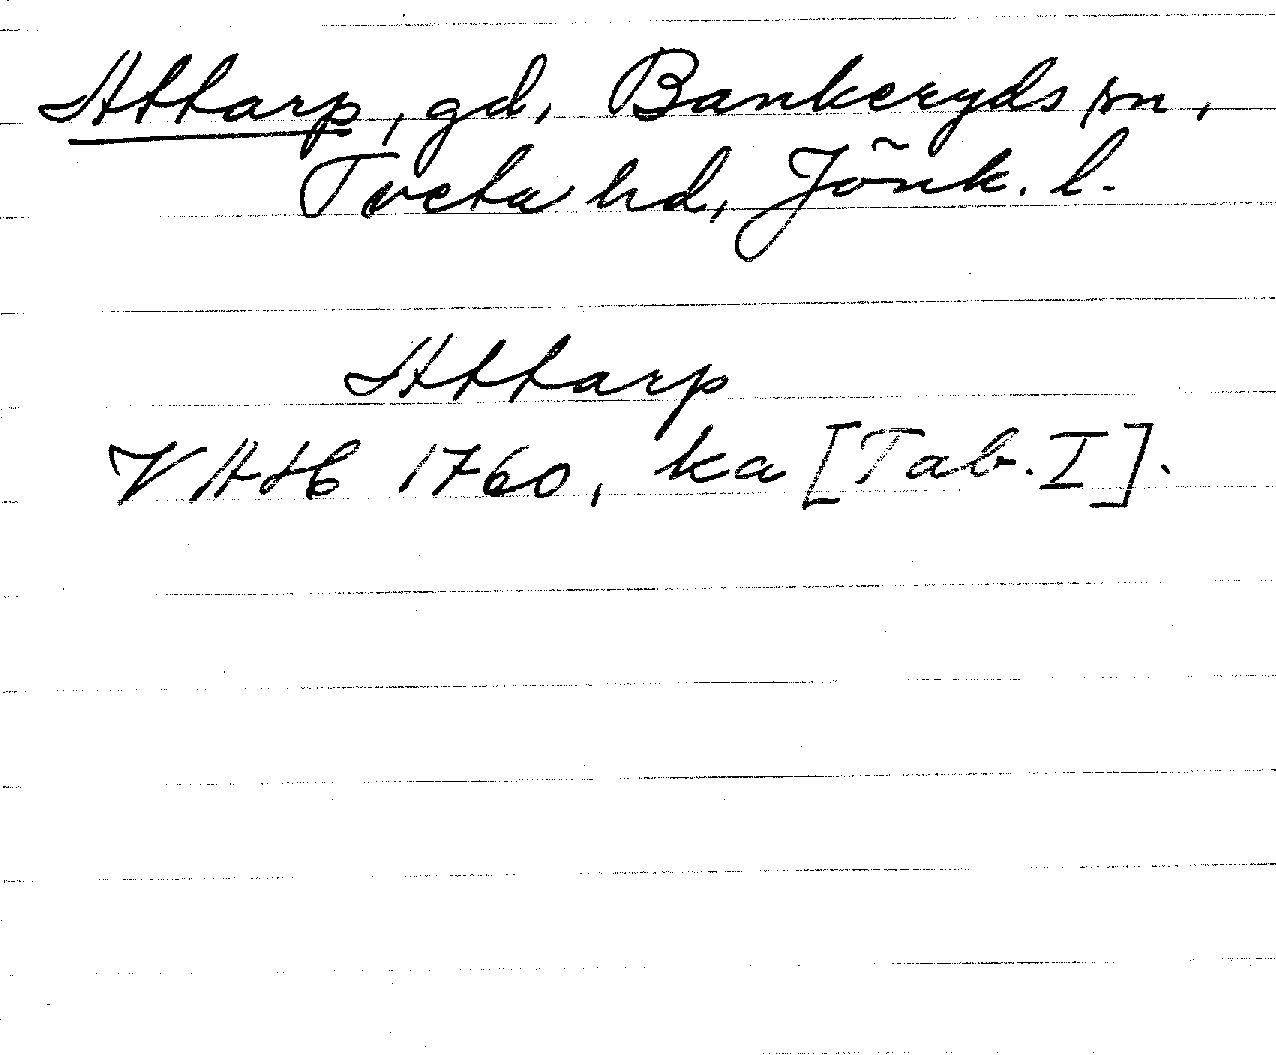 Attarp, gd, Bankeryds sn,
Tveta hd, Jönk. l.
Attarp
VAH 1760, ka [Tab. I].